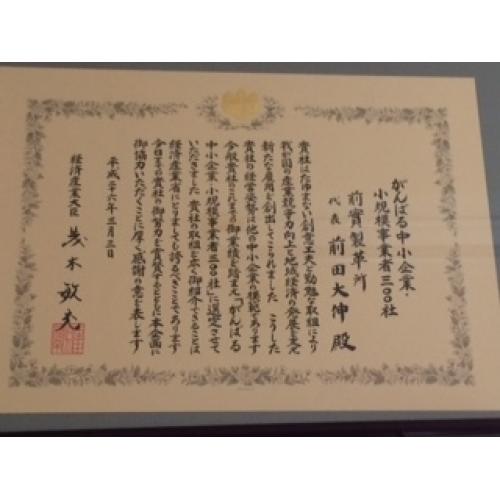 がんばる中小企業・
小規模事業者三〇〇社
前實製革所
代表 前田大伸 殿
貴社はたゆまない創意工夫と勤勉な取組により
我が国の産業競争力向上と地域経済の発展を支え
新たな雇用を創出してこられました こうした
貴社の経営姿勢は他の中小企業の模範であります
今般貴社のこれまでの御業績を踏まえ「がんばる
中小企業・小規模事業者三〇〇社」に選定させて
いただきました 貴社の取組を広く御紹介できることは
経済産業省にとりましても誇るべきことであります
今日までの貴社の御努力を賞賛するとともに本企画に
御協力いただくことに厚く感謝の意を表します
平成二十六年三月三日
経済産業大臣 茂木敏充